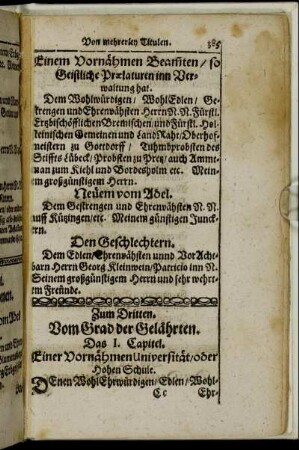 Von mehrerley Titulen. 385
Einem Vornähmen Beamten / so
Geistliche Prælaturen inn Ver-
waltung hat.
Dem Wohlwürdigen / WohlEdlen / Ge-
strengen und Ehrenwähsten Herrn N. N. Fürstl.
Ertzbischöfflichen Bremischen und Fürstl. Hol-
steinischen Gemeinen und LandRaht / Oberhof-
meistern zu Gottdorff / Tuhmbprobsten des
Stifftes Lübeck / Probsten zu Preetz / auch Ammt-
man zum Kiehl und Bordesholm etc. Mei-
nem großgünstigem Herrn.
Neuem vom Adel.
Dem Gestrengen und Ehrenwähsten N. N.
auff Kützingen / etc. Meinem günstigen Junck-
ern.
Den Geschlechtern.
Dem Edlen / Ehrenwähsten unnd Vor Acht-
barn Herrn Georg Kleinwein / Patricio inn N.
Seinem großgünstigem Herrn und sehr wehr-
tem Freünde.
Zum Dritten.
Vom Grad der Gelährten.
Das I. Capitel.
Einer Vornähmen Universität / oder
Hohen Schule.
DEnen WohlEhrwürdigen / Edlen / Wohl-
Cc Ehr-